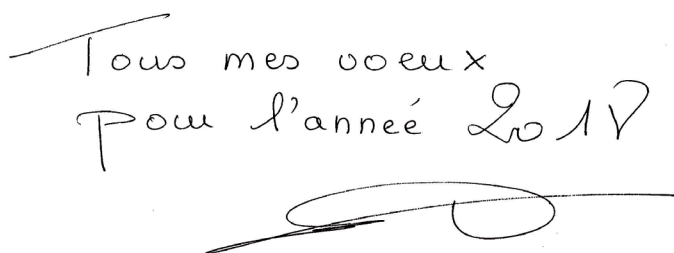 Tous mes voeux
pour l'année 2018